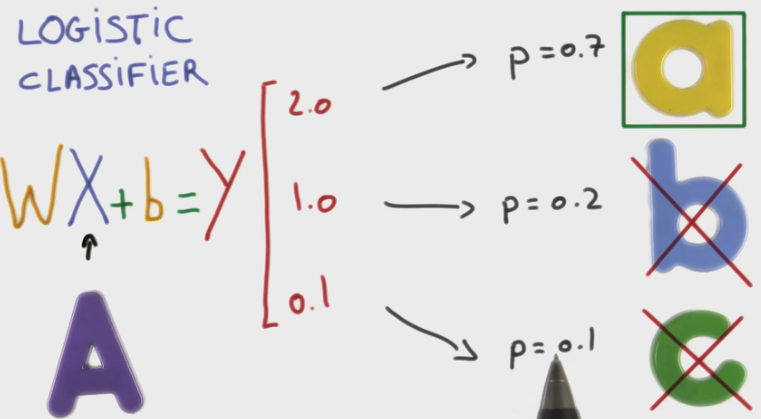 LOGISTIC
CLASSIFIER
WX + b = Y
2.0
1.0
0.1
p = 0.7
p = 0.2
p = 0.1
a
b
c
A